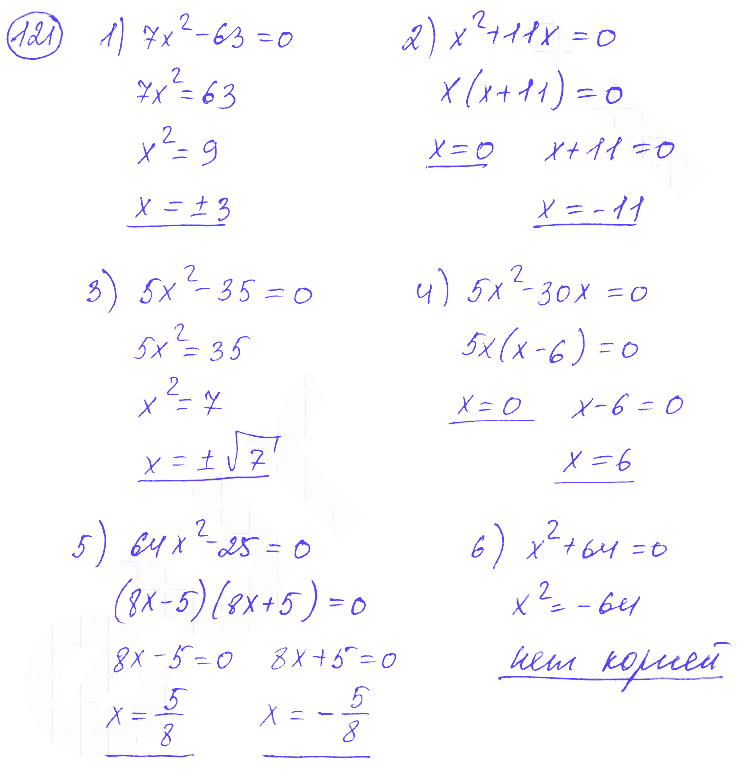 121
1) 7x² - 63 = 0
7x² = 63
x² = 9
x = ±3
2) x² + 11x = 0
x(x + 11) = 0
x = 0    x + 11 = 0
x = -11
3) 5x² - 35 = 0
5x² = 35
x² = 7
x = ±√7
4) 5x² - 30x = 0
5x(x - 6) = 0
x = 0    x - 6 = 0
x = 6
5) 64x² - 25 = 0
(8x - 5)(8x + 5) = 0
8x - 5 = 0    8x + 5 = 0
x = 5/8    x = -5/8
6) x² + 64 = 0
x² = -64
нет корней